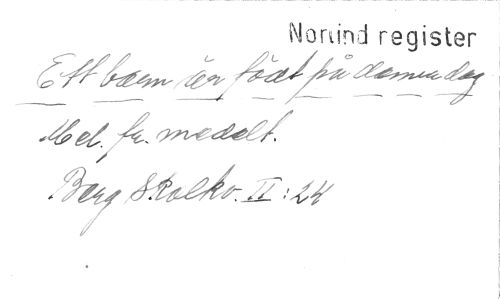 Norlind register
Ett barn är födt på denna dag
Mel. fr. medelt.
Berg Skolkv. II: 24